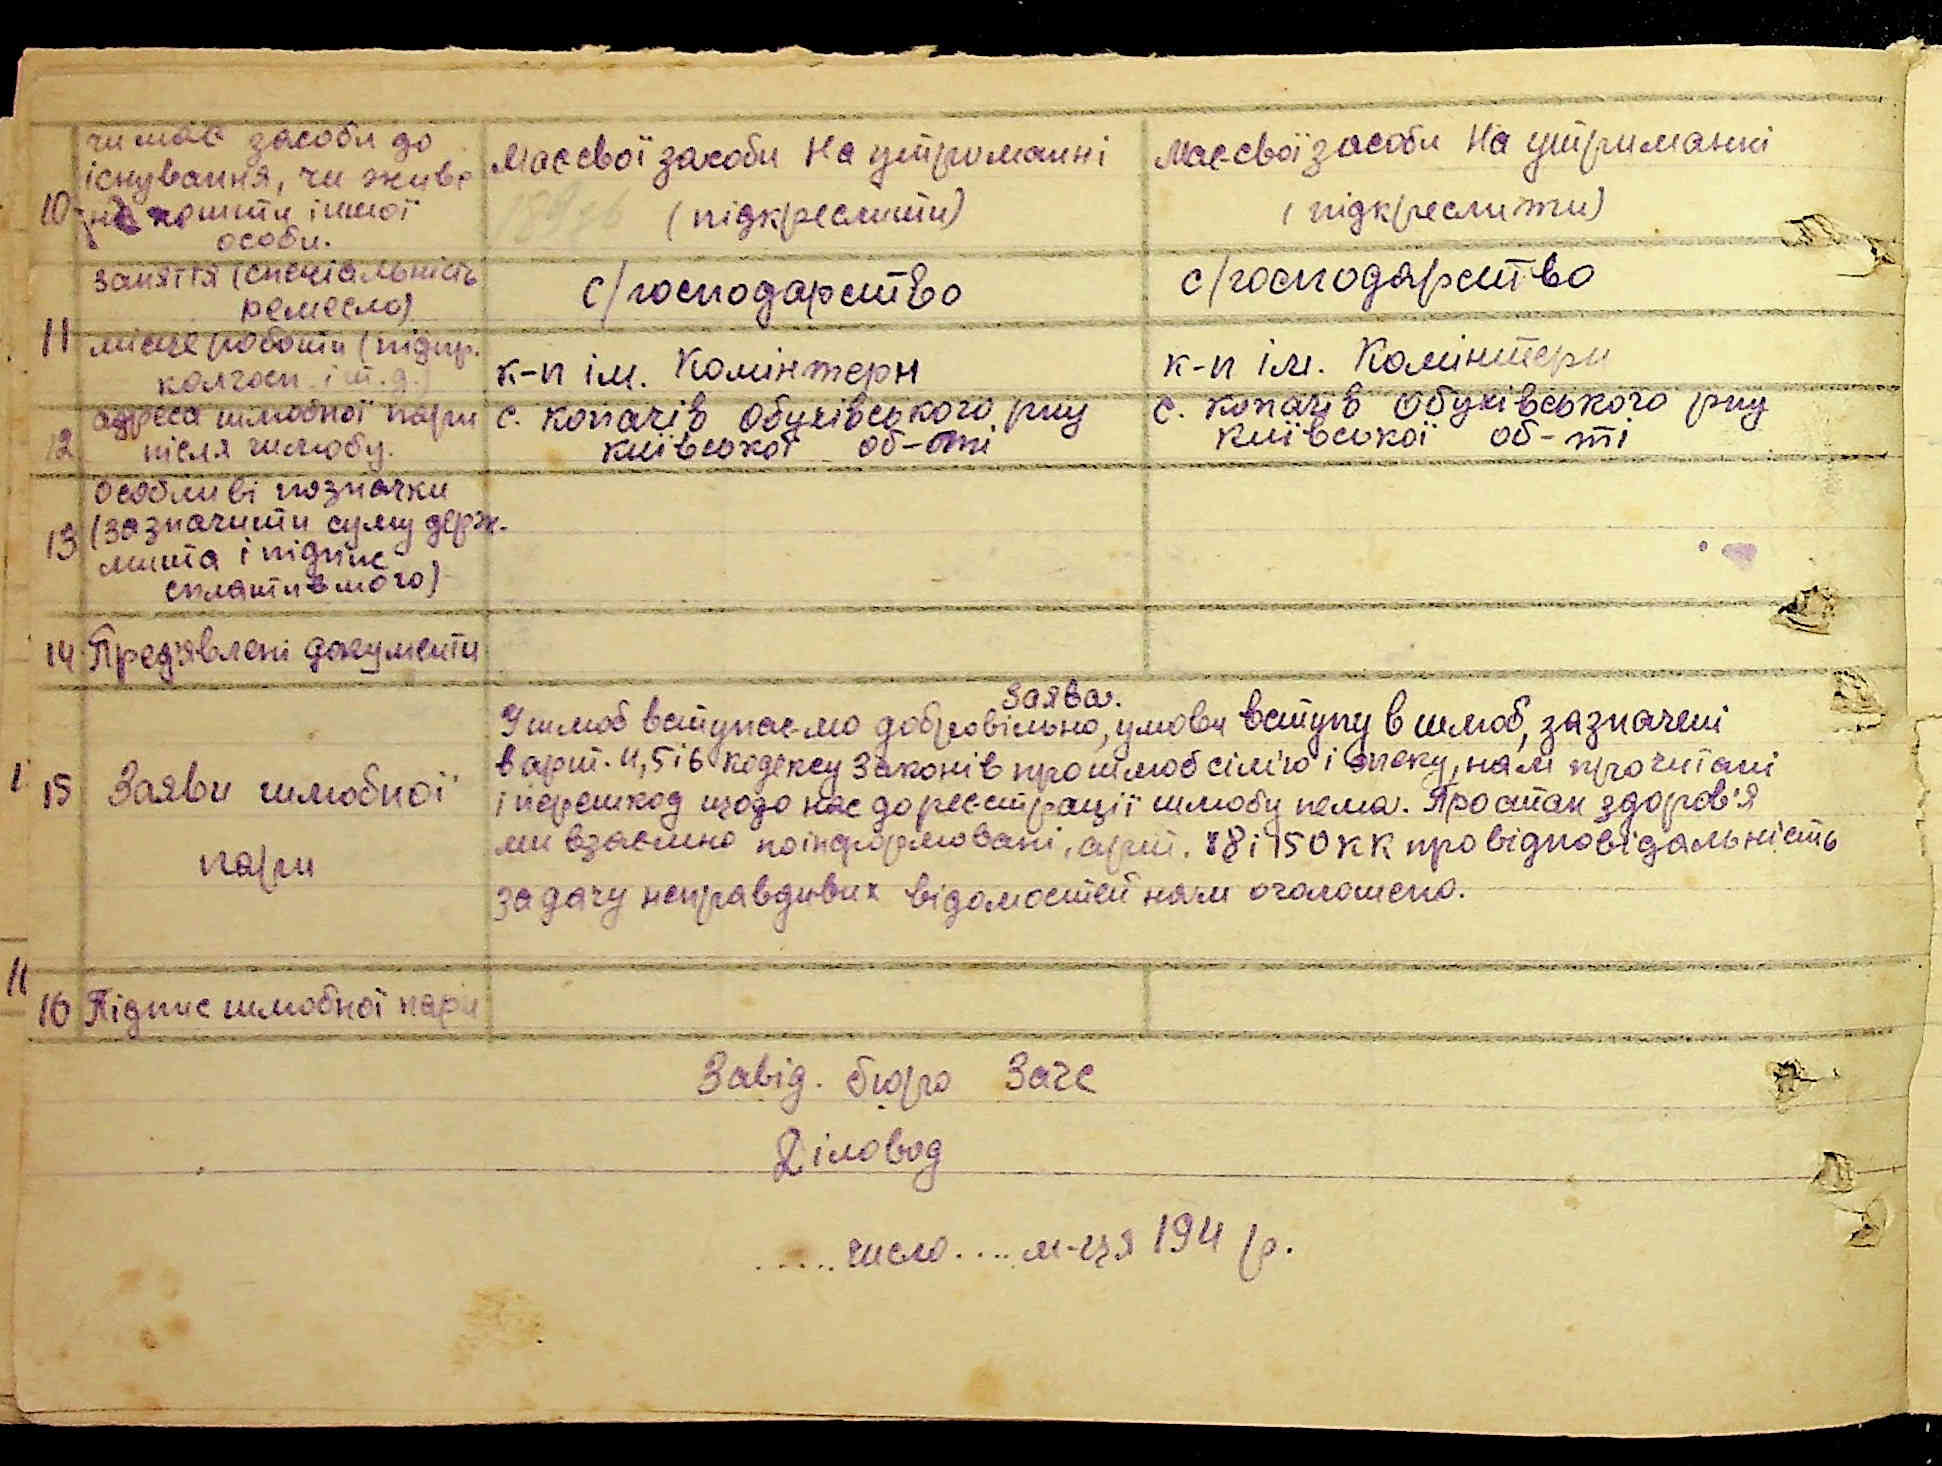 чи має засоби до
існування, чи живе
10 на кошти іншої
особи.
Має свої засоби На утриманні
(підкреслити)
Має свої засоби На утриманні
(підкреслити)
заняття (спеціальність
ремесло)
с/господарство
с/господарство
11 місце роботи (підпр.
колгосп і т.д.)
к-п ім. Комінтерн
к-п ім. Комінтерн
адреса шлюбної пари
12 після шлюбу.
с. Копачів Обухівського р-ну
Київської об-ті
с. Копачів Обухівського р-ну
Київської об-ті
особливі позначки
(зазначити суму держ.
13 мита і підпис
сплатившого)
14 Пред'явлені документи
Заява.
15 Заяви шлюбної
пари
У шлюб вступаємо добровільно, умови вступу в шлюб, зазначені
в арт. 4, 5 і 6 кодексу Законів про шлюб сім'ю і опеку, нам прочитані
і перешкод щодо нас до реєстрації шлюбу нема. Про стан здоров'я
ми взаємно поінформовані, арт. 88 і 150 КК про відповідальність
за дачу неправдивих відомостей нам оголошено.
16 Підпис шлюбної пари
Завід. бюро Загс
Діловод
.....число....м-ця 194 р.